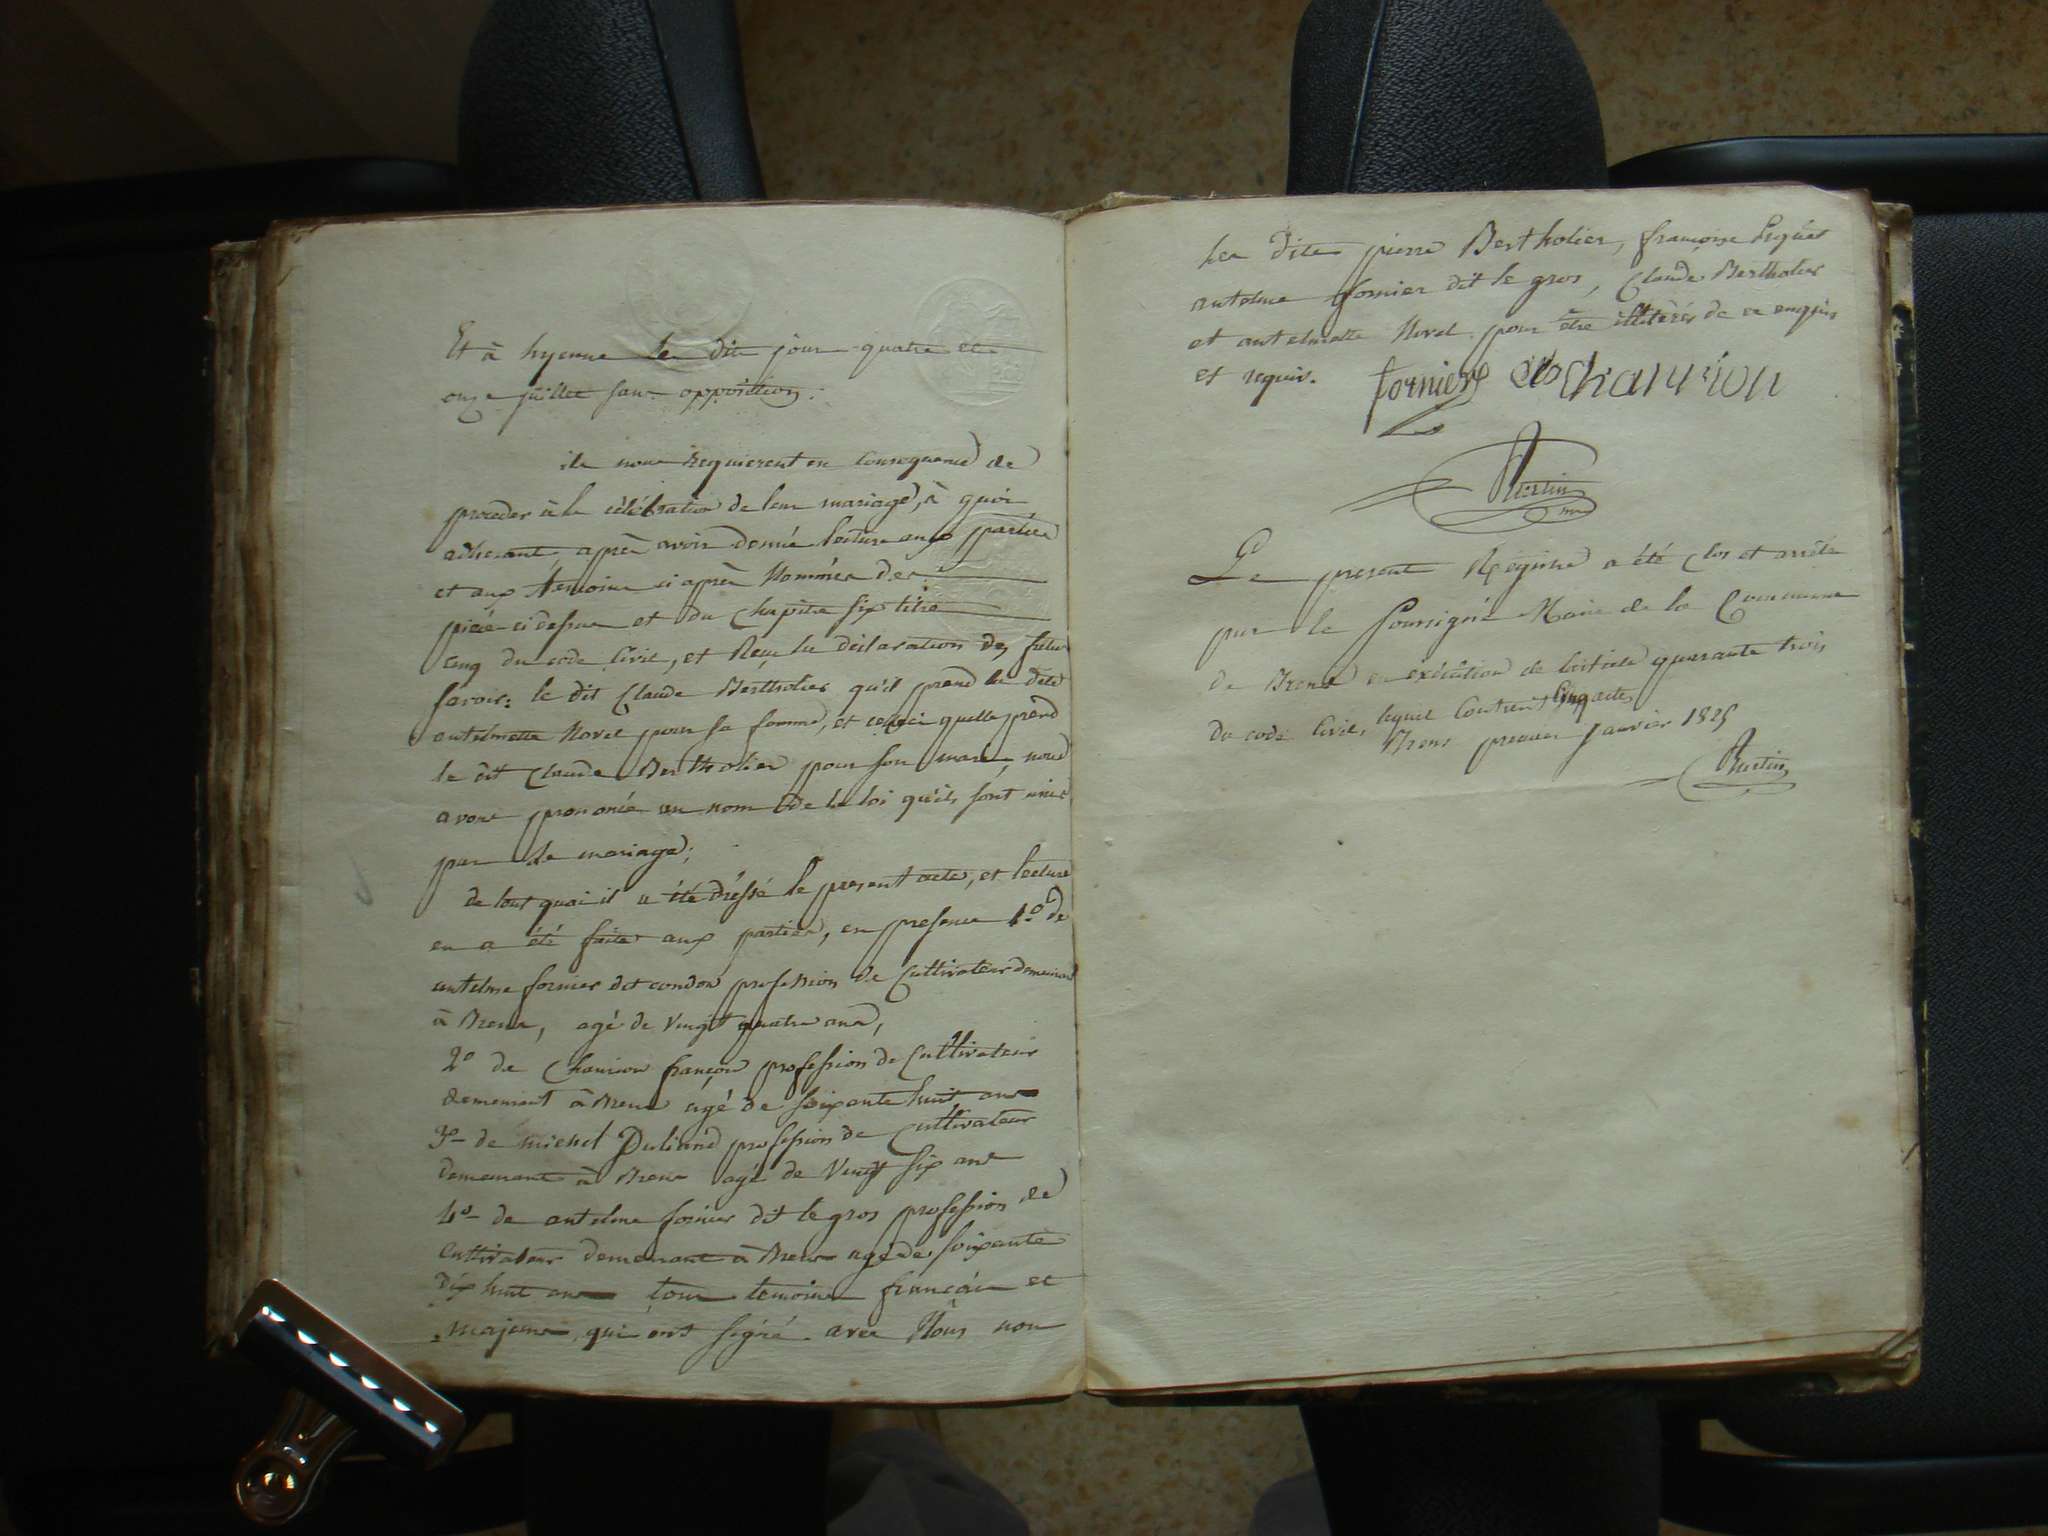 Et à hyenne les dits jour quatre et
onze juillet sans opposition.
ils nous requierent en Consequence de
proceder à la célébration de leur mariage, à quoi
adherant, après avoir donné lecture aux parties
et aux temoins ci après Nommés des
pieces ci dessus et du Chapitre six titre
cinq du code Civil, et Reçu la déclaration des futurs
savoir; le dit Claude Bertholier qu'il prend la dite
antelmette Novel pour sa femme, et celleci quelle prend
le dit Claude Bertholier pour son mari, nous
avons prononcé au nom de la loi qu'ils sont unis
par le mariage;
de tout quoi il a été dréssé le present acte, et lecture
en a été faite aux parties, en presence 1.° de
antelme fornier dit condon profession de Cultivateur demeurant
à Brens, agé de vingt quatre ans,
2° de Chanion françois profession de Cultivateur
demeurant à Brens agé de soixante huit ans
3° de michel Duliand profession de Cultivateur
demeurant à Brens agé de Vingt six ans
4° de antelme fornier dit le gros profession de
cultivateur demeurant à Brens agé de soixante
dix huit ans tous temoins français et
majeurs, qui ont signé avec Nous non
les dits pierre Bertholier, françoise
antelme fornier dit le gros, Claude Bertholier
et antelmette Novel pour être illitérés de ce enquis
et requis. fornier
Martin
Le present Registre a été Clos et arrêté
par le Soussigné Maire de la Commune
de Brens en exécution de l'article quarante trois
du code Civil, lequel Contient Cinq actes
Brens premier Janvier 1825
Martin